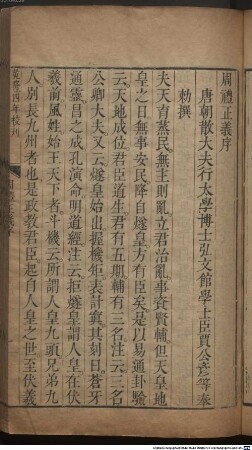 周禮正義序
唐朝散大夫行太學博士弘文館學士臣賈公彥等奉
勅撰
夫天育蒸民無主則亂立君治亂事資賢輔但天皇地
皇之日無事安民降自燧皇方有臣矣是以易通卦驗
云天地成位君臣道生君有五期輔有三名注云三名
公卿大夫又云燧皇始出握機矩表計寘其刻曰蒼牙
通靈昌之成孔演命明道經注云拒燧皇謂人皇在伏
羲前風姓始王天下者斗機云所謂人皇九頭兄弟九
人別長九州者也是政教君臣起自人皇之世至伏羲